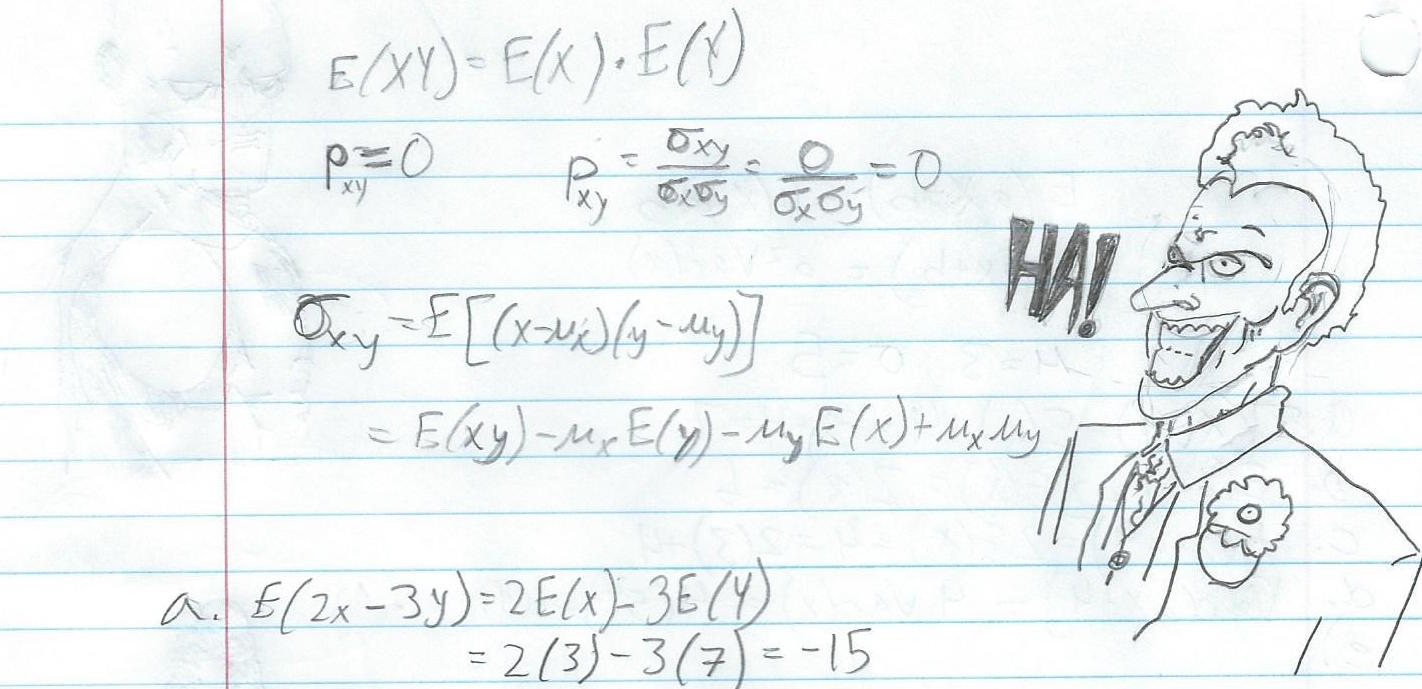 E(XY) = E(X) · E(Y)
ρxy = 0    ρxy = σxy / σxσy = 0 / σxσy = 0
HA!
σxy = E[(x-μx)(y-μy)]
= E(xy) - μxE(y) - μyE(x) + μxμy
a. E(2x - 3y) = 2E(x) - 3E(Y)
= 2(3) - 3(7) = -15